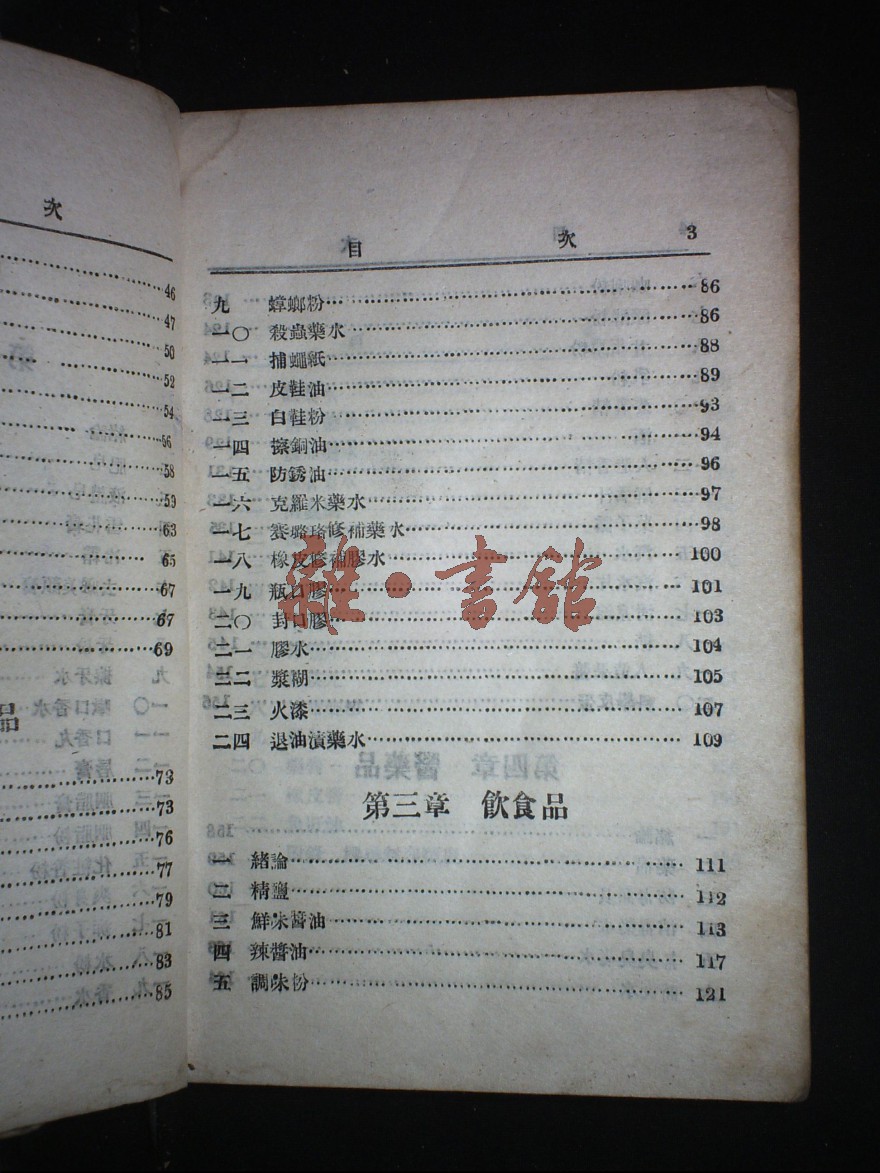 次
46
47
50
52
54
56
58
59
63
65
67
67
69
品
73
73
76
77
79
81
83
85
目 次 3
九 蟑螂粉 86
一〇 殺蟲藥水 86
一一 捕蠅紙 88
一二 皮鞋油 89
一三 白鞋粉 93
一四 擦銅油 94
一五 防銹油 96
一六 克羅米藥水 97
一七 賽璐珞修補藥水 98
一八 橡皮修補膠水 100
一九 瓶口膠 101
二〇 封口膠 103
二一 膠水 104
二二 漿糊 105
二三 火漆 107
二四 退油漬藥水 109
第三章 飲食品
一 緒論 111
二 精鹽 112
三 鮮味醬油 113
四 辣醬油 117
五 調味粉 121
雜·書館